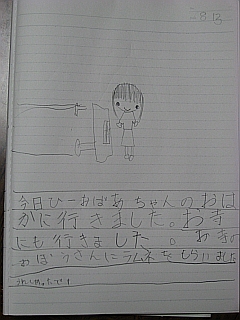 8 13
今日ひーおばあちゃんのおは
かに行きました。お寺
にも行きました。お寺の
おぼうさんにラムネをもらいました
うれしかったです